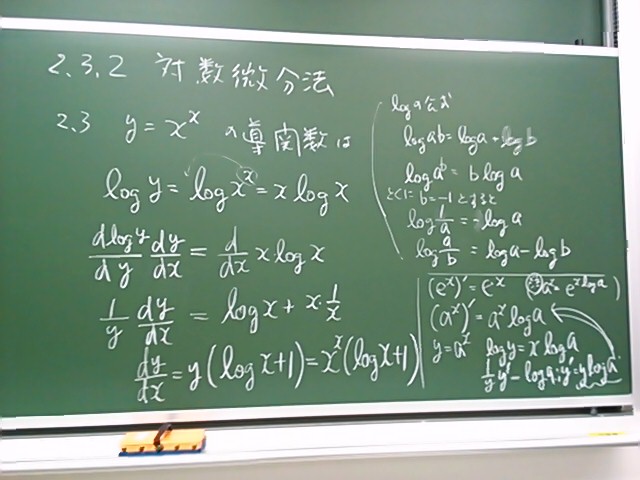 2.3.2 対数微分法
2.3 y = x^x の導関数は
log y = log x^x = x log x
dlogy/dy dy/dx = d/dx x log x
1/y dy/dx = log x + x 1/x
dy/dx = y(log x+1) = x^x(log x+1)
logの公式
log ab = log a + log b
log a^b = b log a
とくに b=-1 とすると
log 1/a = -log a
log a/b = log a - log b
(e^x)' = e^x a^x = e^{x log a}
(a^x)' = a^x log a
y = a^x log y = x log a
1/y y' = log a y' = y log a